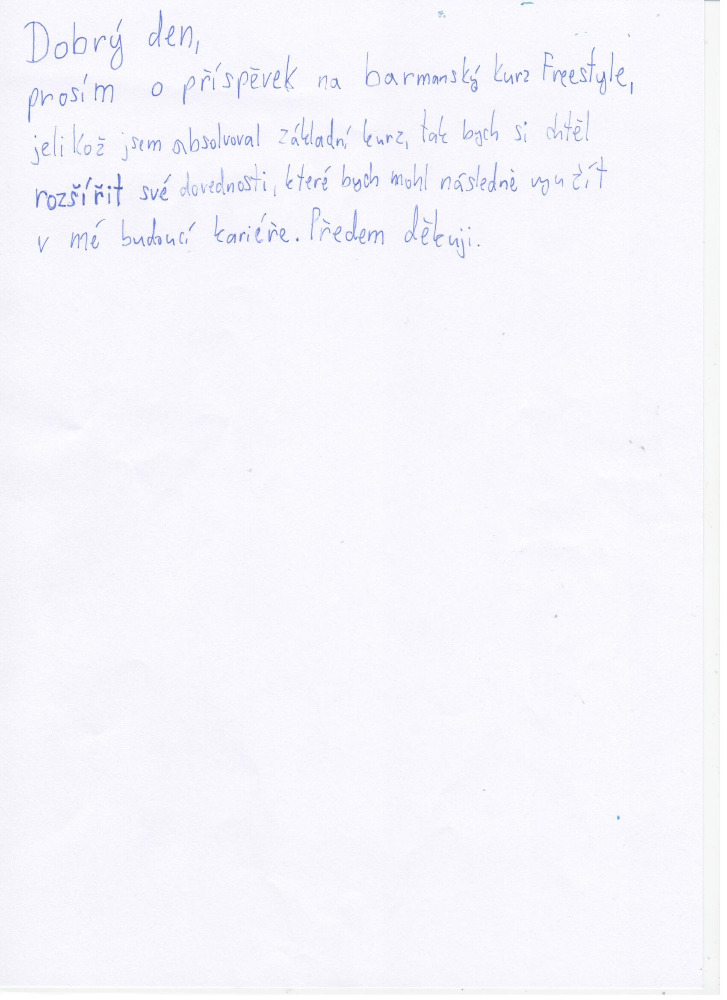 Dobrý den,
prosím o příspěvek na barmanský kurz Freestyle,
jelikož jsem absolvoval základní kurz, tak bych si chtěl
rozšířit své dovednosti, které bych mohl následně využít
v mé budoucí kariéře. Předem děkuji.